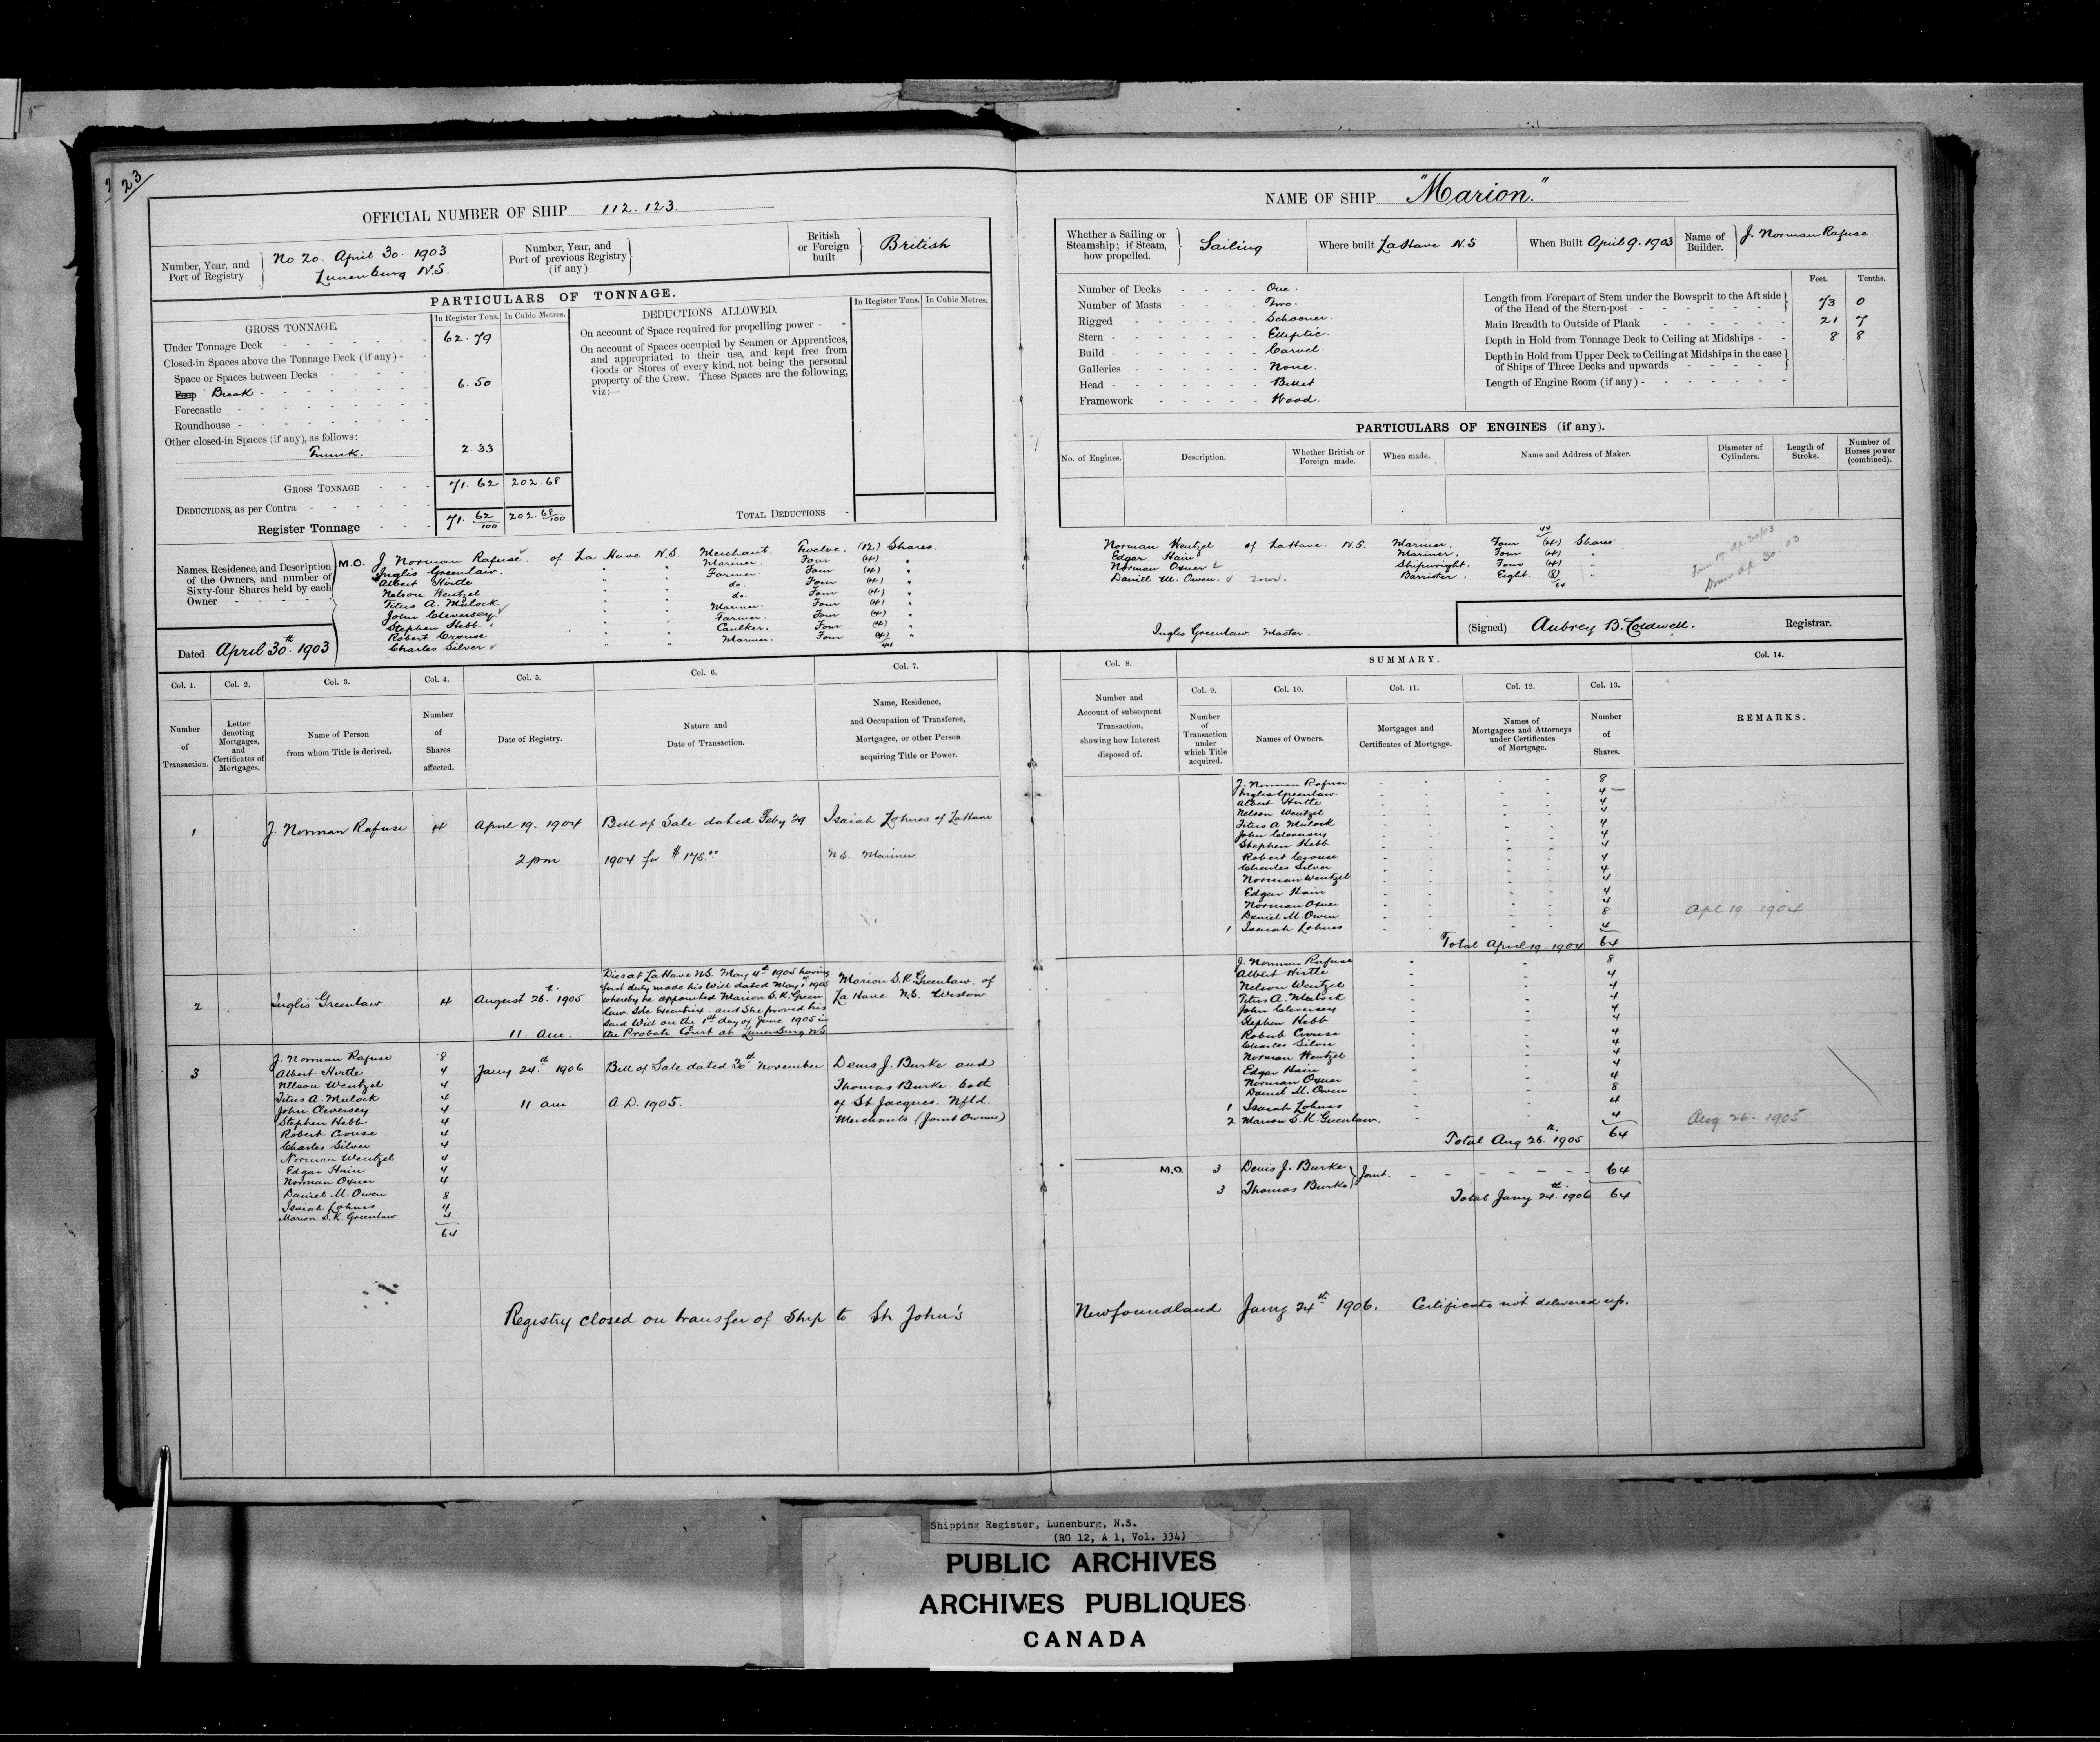 23
OFFICIAL NUMBER OF SHIP 112.123.
Number, Year, and Port of Registry
No 20. April 30. 1903
Lunenburg N.S.
Number, Year, and Port of previous Registry (if any)
British or Foreign built
British
PARTICULARS OF TONNAGE.
GROSS TONNAGE.
In Register Tons. In Cubic Metres.
Under Tonnage Deck 62.79
Closed-in Spaces above the Tonnage Deck (if any)
Space or Spaces between Decks
Poop Break 6.50
Forecastle
Roundhouse
Other closed-in Spaces (if any), as follows:
Trunk. 2.33
GROSS TONNAGE 71.62 202.68
DEDUCTIONS, as per Contra
Register Tonnage 71. 62/100 202. 68/100
DEDUCTIONS ALLOWED.
In Register Tons. In Cubic Metres.
On account of Space required for propelling power
On account of Spaces occupied by Seamen or Apprentices, and appropriated to their use, and kept free from Goods or Stores of every kind, not being the personal property of the Crew. These Spaces are the following, viz:—
TOTAL DEDUCTIONS
Names, Residence, and Description of the Owners, and number of Sixty-four Shares held by each Owner
M.O. J. Norman Rafuse of La Have N.S. Merchant. Twelve. (12) Shares.
Inglis Greenlaw. " " Mariner. Four (4) "
Albert Hirtle " " Farmer. Four (4) "
Nelson Wentzel " " do. Four (4) "
Titus A. Mulock " " do. Four (4) "
John Cleversey " " Mariner. Four (4) "
Stephen Hebb " " Farmer. Four (4) "
Robert Crouse " " Caulker. Four (4) "
Charles Silver " " Mariner. Four (4) "
44
Dated April 30th. 1903
NAME OF SHIP "Marion."
Whether a Sailing or Steamship; if Steam, how propelled.
Sailing
Where built LaHave N.S
When Built April 9. 1903
Name of Builder.
J. Norman Rafuse.
Number of Decks One.
Number of Masts Two.
Rigged Schooner.
Stern Elliptic.
Build Carvel.
Galleries None.
Head Billet.
Framework Wood.
Feet. Tenths.
Length from Forepart of Stem under the Bowsprit to the Aft side of the Head of the Stern-post 73 0
Main Breadth to Outside of Plank 21 7
Depth in Hold from Tonnage Deck to Ceiling at Midships 8 8
Depth in Hold from Upper Deck to Ceiling at Midships in the case of Ships of Three Decks and upwards
Length of Engine Room (if any)
PARTICULARS OF ENGINES (if any).
No. of Engines. Description. Whether British or Foreign made. When made. Name and Address of Maker. Diameter of Cylinders. Length of Stroke. Number of Horses power (combined).
44
Norman Wentzel of LaHave. N.S. Mariner, Four (4) Shares
Edgar Hain " Mariner, Four (4) "
Norman Oxner Shipwright, Four (4) "
Daniel M. Owen. Barrister. Eight (8) "
64
Inglis Greenlaw Master.
(Signed) Aubrey B. Coldwell. Registrar.
Col. 1. Col. 2. Col. 3. Col. 4. Col. 5. Col. 6. Col. 7.
Number of Transaction.
Letter denoting Mortgages, and Certificates of Mortgages.
Name of Person from whom Title is derived.
Number of Shares affected.
Date of Registry.
Nature and Date of Transaction.
Name, Residence, and Occupation of Transferee, Mortgagee, or other Person acquiring Title or Power.
Col. 8. SUMMARY. Col. 14.
Col. 9. Col. 10. Col. 11. Col. 12. Col. 13.
Number and Account of subsequent Transaction, showing how Interest disposed of.
Number of Transaction under which Title acquired.
Names of Owners.
Mortgages and Certificates of Mortgage.
Names of Mortgagees and Attorneys under Certificates of Mortgage.
Number of Shares.
REMARKS.
1 J. Norman Rafuse 4 April 19. 1904 Bill of Sale dated Feby 29 Isaiah Lohnes of LaHave
2 pm 1904 for $175.00 N.S. Mariner
J. Norman Rafuse 8
Inglis Greenlaw 4
Albert Hirtle 4
Nelson Wentzel 4
Titus A. Mulock 4
John Cleversey 4
Stephen Hebb 4
Robert Crouse 4
Charles Silver 4
Norman Wentzel 4
Edgar Hain 4
Norman Oxner 4
Daniel M. Owen 8
1 Isaiah Lohnes 4
Total April 19. 1904 64
Apl 19 1904
2 Inglis Greenlaw 4 August 26th. 1905
11. am.
Dies at LaHave N.S. May 4th 1905 having
first duly made his Will dated May 1st 1905
whereby he appointed Marion S. K. Green
law. Sole Executrix. and She proved his
said Will on the 1st day of June 1905 in
the Probate Court at Lunenburg N.S
Marion S. K. Greenlaw. of
La Have N.S. Widow
J. Norman Rafuse 8
Albert Hirtle 4
Nelson Wentzel 4
Titus A. Mulock 4
John Cleversey 4
Stephen Hebb 4
Robert Crouse 4
Charles Silver 4
Norman Wentzel 4
Edgar Hain 4
Norman Oxner 4
Daniel M. Owen 8
1 Isaiah Lohnes 4
2 Marion S. K. Greenlaw. 4
Total Aug 26th. 1905 64
Aug 26. 1905
3 J. Norman Rafuse 8
Albert Hirtle 4
Nelson Wentzel 4
Titus A. Mulock 4
John Cleversey 4
Stephen Hebb 4
Robert Crouse 4
Charles Silver 4
Norman Wentzel 4
Edgar Hain 4
Norman Oxner 4
Daniel M. Owen 8
Isaiah Lohnes 4
Marion S. K. Greenlaw 4
64
Jany 24th 1906
11 am
Bill of Sale dated 30th November
A.D. 1905.
Denis J. Burke and
Thomas Burke both
of St Jacques. Nfld.
Merchants (Joint Owners)
M.O. 3 Denis J. Burke Joint. 64
3 Thomas Burke
Total Jany 24th. 1906 64
Registry closed on transfer of Ship to St John's Newfoundland Jany 24th 1906. Certificate not delivered up.
Shipping Register, Lunenburg, N.S.
(RG 12, A 1, Vol. 334)
PUBLIC ARCHIVES
ARCHIVES PUBLIQUES
CANADA